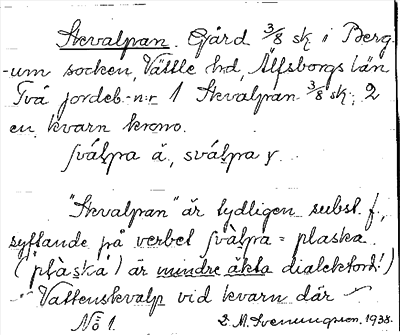 Skvalpan. Gård 3/8 sk i Berg-
um socken, Vättle hd, Älfsborgs län
Två jordeb.-n:r 1 Skvalpan 3/8 sk; 2
en kvarn krono.
"Skvalpan" är tydligen subst. f.,
syftande på verbet = plaska.
("plàska") är mindre äkta dialektord!)
Vattenskvalp vid kvarn där
No 1. 1938.